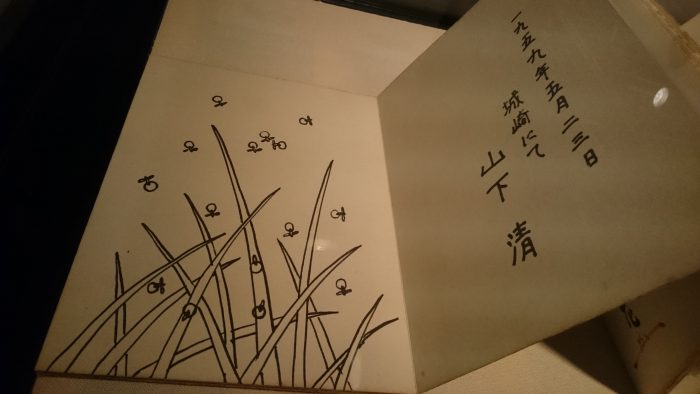 一九五九年五月二三日
城崎にて
山下 清